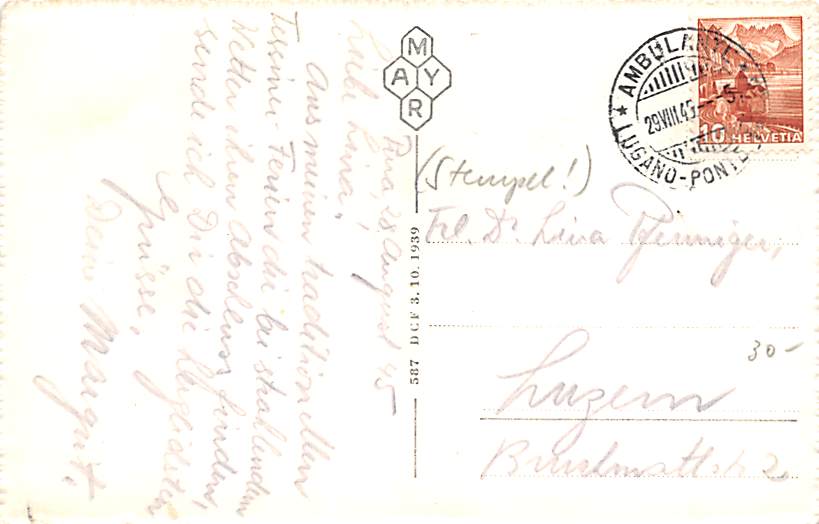 Pura, 28 August 45
Liebe Lina!
Aus meinen traditionellen
Tessiner Ferien die bei strahlendem
Wetter ihren Abschluss finden,
sende ich Dir die herzlichsten
Grüsse,
Deine Margrit.
MAYR
587 DCF 3.10.1939
AMBULANT
29.VIII.45.--5.
LUGANO-PONTE
10 HELVETIA
(Stempel!)
Frl. Dr. Lina Pfenniger,
30-
Luzern
Bruchmattstr 2